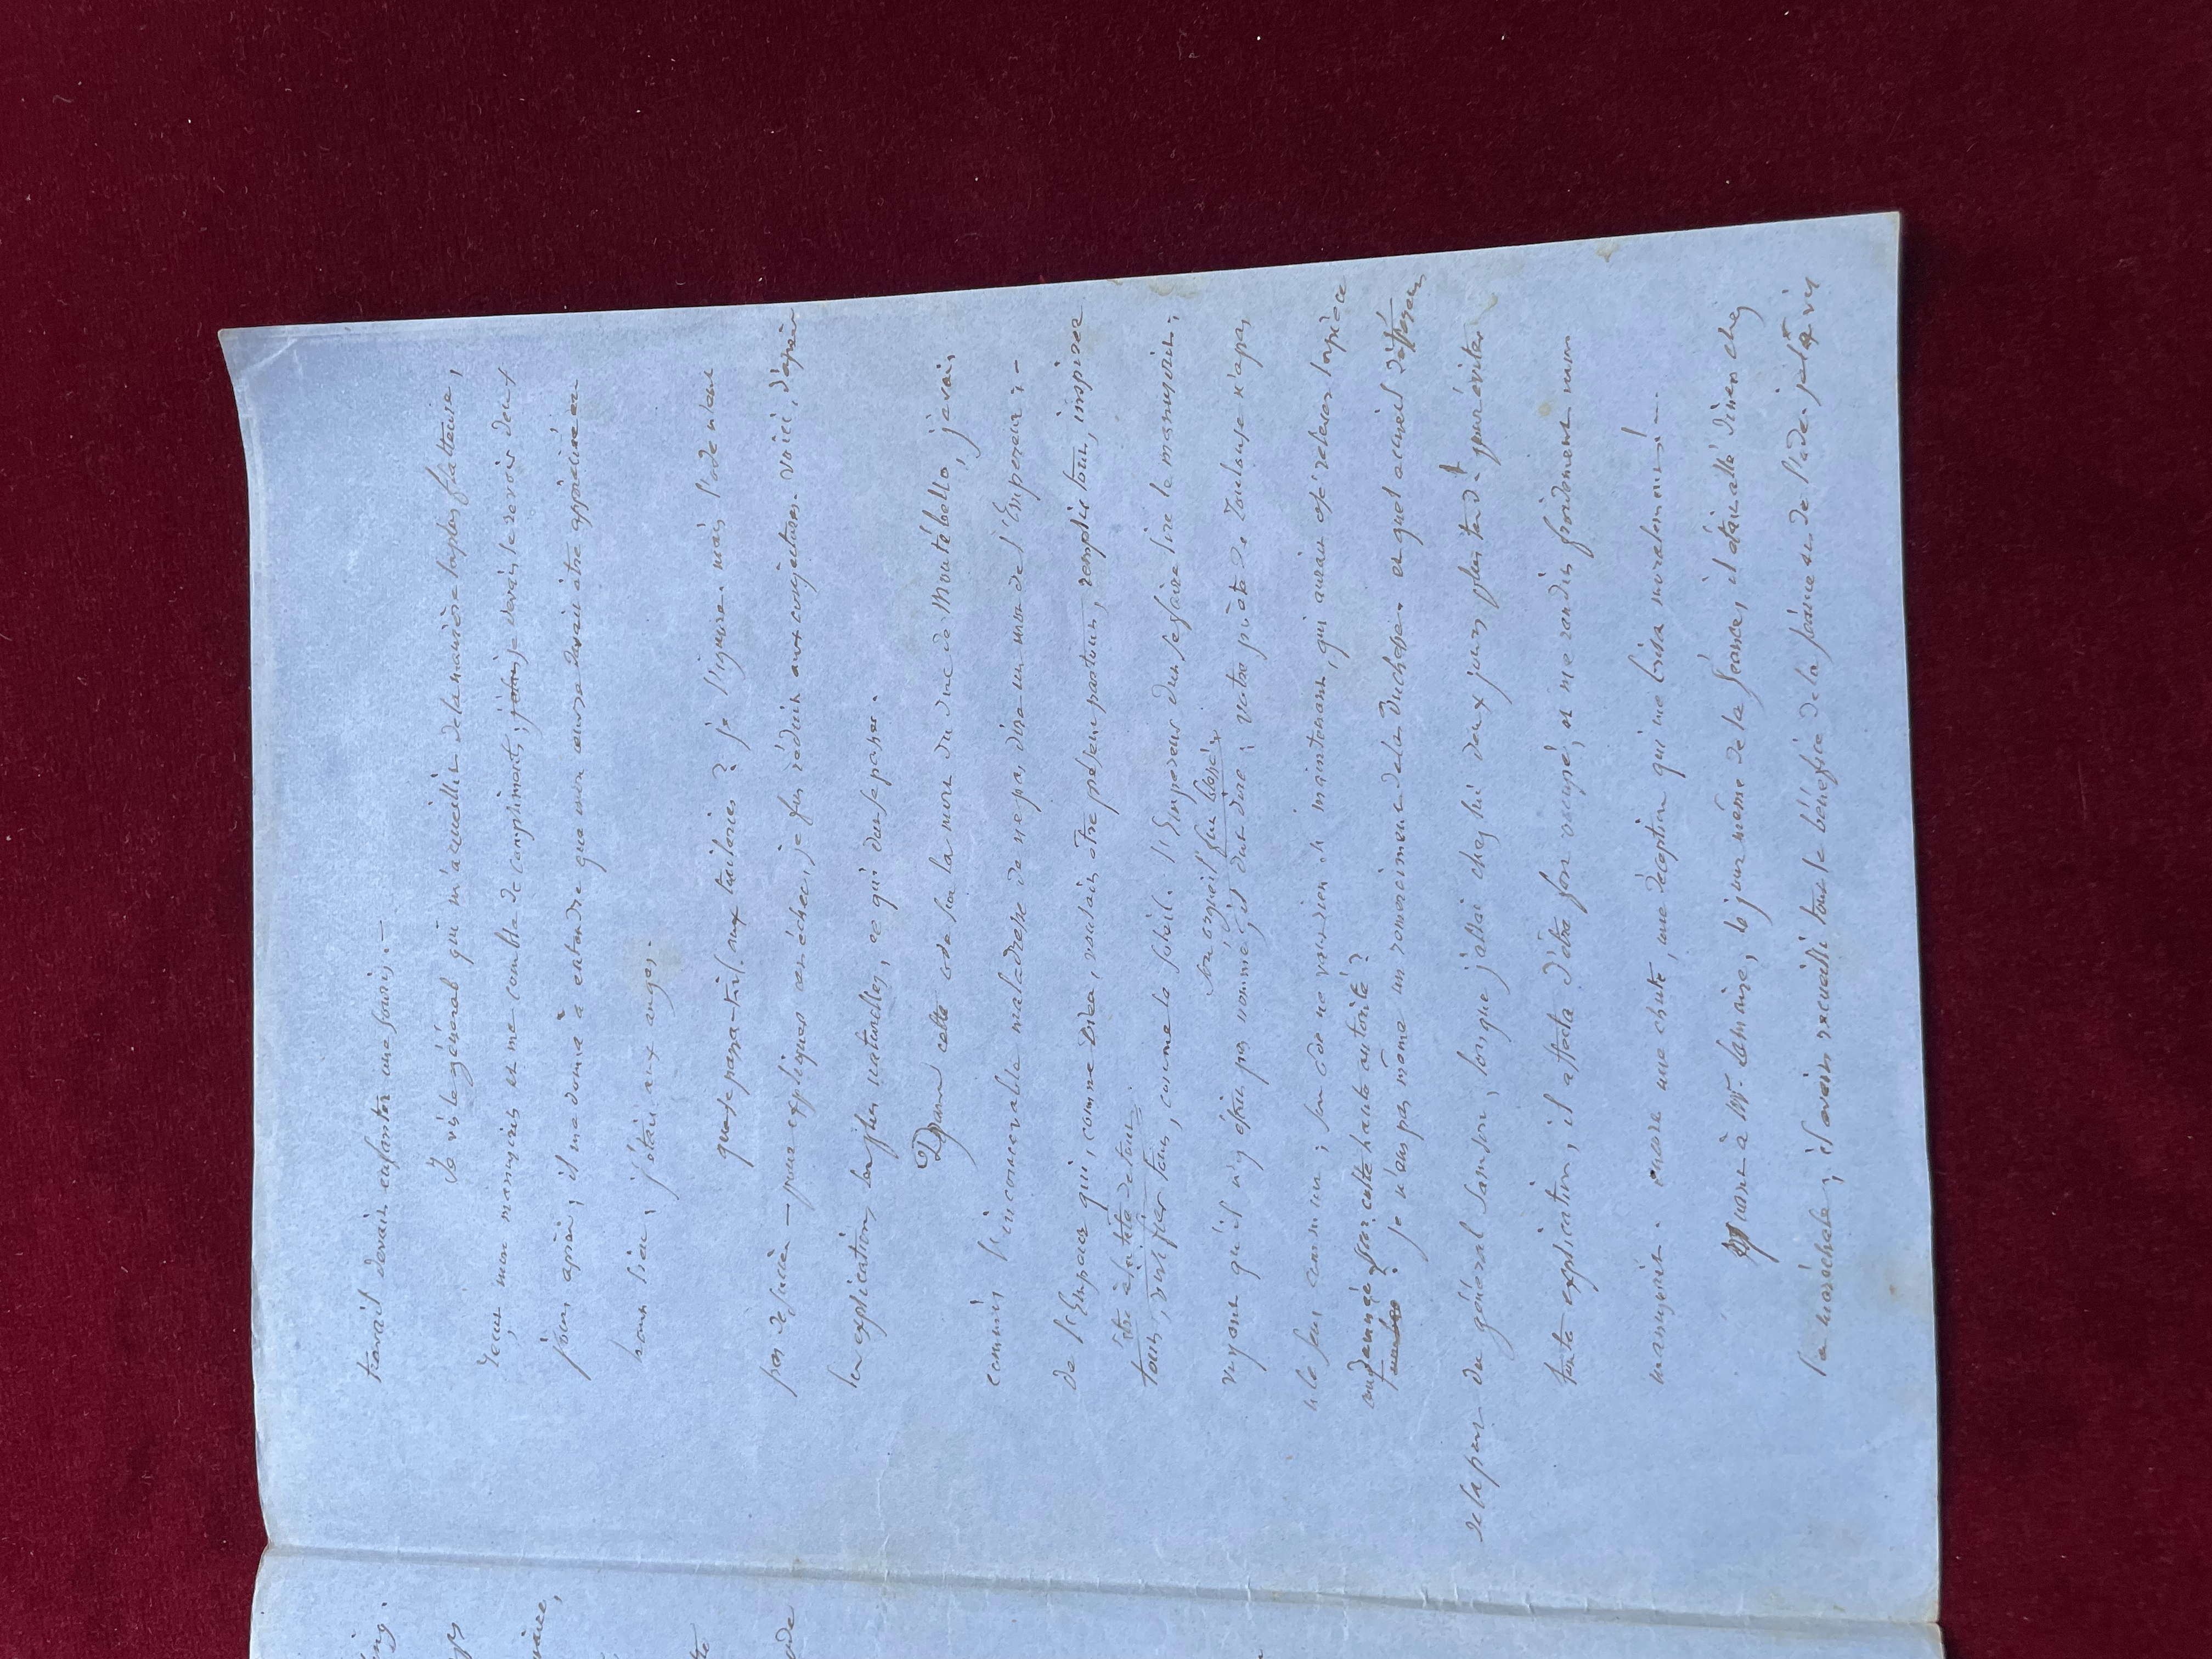 travail devait enfanter une souris. —
Je vis le général qui m'accueillit de la manière la plus flatteuse,
reçut mon manuscrit et me combla de compliments; je devais le revoir deux
jours après; il me donna à entendre que mon œuvre devait être appréciée
haut lieu; j'étais aux anges.
que se passa-t-il aux tuileries? je l'ignore. mais l'ode n'eut
pas de succès — pour expliquer cet échec, je fus réduit aux conjectures. voici, d'après
les explications les plus naturelles, ce qui dut se passer.
Dans cette ode sur la mort du duc de Montébello, j'avais
commis l'inconcevable maladresse de ne pas dire un mot de l'Empereur; —
de l'Empereur qui, comme Dieu, voulait être présent partout, remplir tout, inspirer
être à la tête de tout
tout, vivifier tout, comme le soleil. l'Empereur dut se faire lire le manuscrit;
son orgueil fut blessé;
voyant qu'il n'y était pas nommé, il dut dire; votre poète de Toulouse n'a pas
le sens commun; son ode ne vaut rien. et maintenant, qui aurait osé relever la pièce
condamnée par cette haute autorité?
je n'eus pas même un remerciement de la Duchesse. et quel accueil
de la part du général Sanson, lorsque j'allai chez lui deux jours plus tard! pour éviter
toute explication, il affecta d'être fort occupé, et me rendit froidement mon
manuscrit. encore une chute, une déception qui me brisa moralement! —
quant à Mr. , le jour même de la séance, il était allé dîner chez
la maréchale; il avait recueilli tout le bénéfice de la